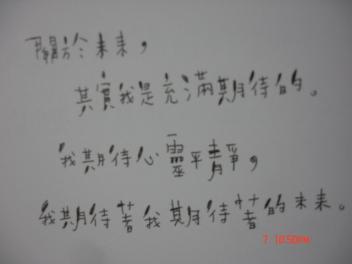 關於未來，
其實我是充滿期待的。
我期待心靈平靜，
我期待著我期待著的未來。
7 10:50PM